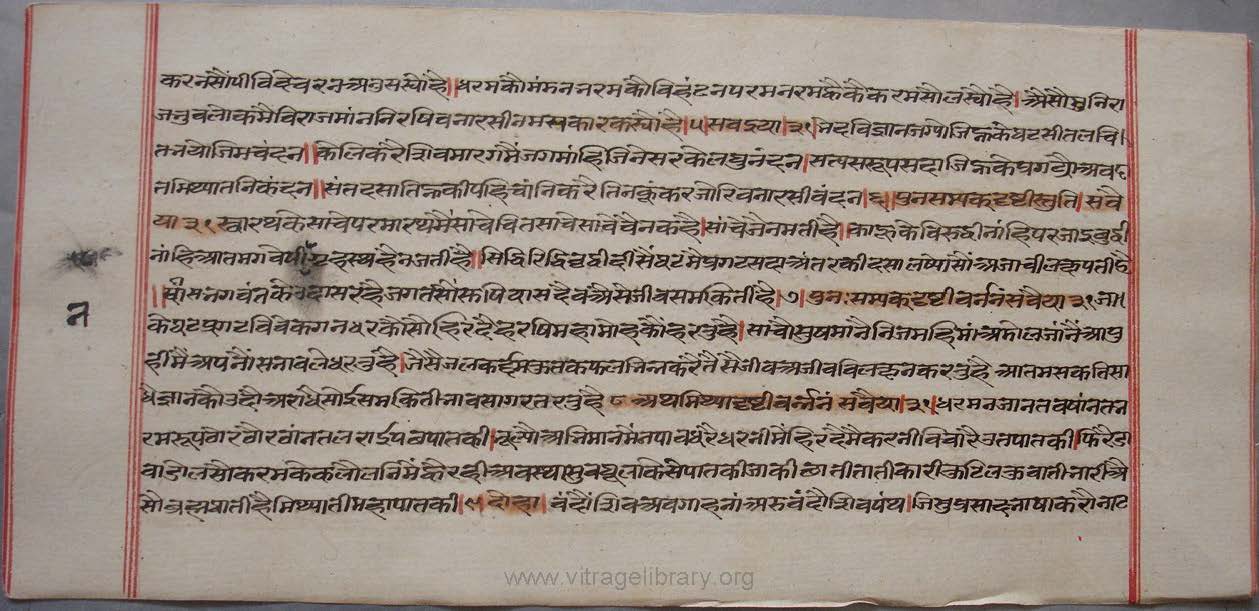 करनसौंपीविस्वेचरनअनुसस्योहै॥धरमकौमंमननरमकौविहंटनपरमनरमव्हैकैकरमसौलस्योहै।अैसौमुनिरा
जनुवलोकमैविराजमांननिरषिवनारसीनमसकारकस्योहै।५।सवइया।३१।नेदविज्ञानजग्योजिह्नकेघटसीतलचि।
तनयोजिमचंदन॥केलिकरैशिवमारगमैजगमांहिजिनेसरकेलघुनंदन।सत्पसरूपसदाजिह्नकेप्रगट्यौअवदा
तमिथ्यातनिकंदन॥संतदसातिह्नकीपहिचांनिकरैतिनकूंकरजोरिवनारसीवंदन।६।पुनसम्पकदृष्टीस्तुति।सवै
या३१स्वारथकेसाचेपरमारथमैसाचेचितसाचेसाचेवैनकहै।सांचेजैनमतीहै।काहूकेविरुद्दीनांहिपरजाइवुद्दी
नांहिआतमगवेषीग्रहस्थहैनजतीहै।सिद्दिरिद्दिवृद्दीदीसैघटमेप्रगटसदाअंतरकीदसालष्पोसौंअजाचीलछपतीहै
॥दासनगवंतकेउदासरहैजगतसौंसुषियासदैवअैसेजीवसमकितीहै।७।पुनःसम्पकदृष्टीवर्ननंसंवैया३१जा।
केघटप्रगटविवेकगनधरकौसौहिरदैहरषिमहामोहकौहरतुहै।साचौसुषमानैनिजमहिमांअमोलजांनेआपु
हीमैअपनौसनावलेधरतुहै।जैसैजलकर्दमकतकफलनिन्नकरैतैसैजीवअजीवविलछनकरतुहै आतमसकतिसा
धैज्ञानकौउदौअराधैसोईसमकितीनावसागरतरतुहै ८ अथमिथ्यादृष्टीवर्न्ननं सवैया।३१।धरमनजानतवषांनतन
रमरूपठौरठौरठांनतलराईपषपातकी।नूल्पौअनिमानमेनपावधरैधरनीमेहिरदैमैकरनीविचारैउतपातकी।फिरैडा
वाडोलसौकरमकेकलोलनिमेव्हैरहीअवस्थासुवघूलाकैसेपातकीजाकीछातीतातीकारीकुटिलकुवातीनारीअै
सौब्रह्मघातीहैमिथ्यातीमहापातकी।९।दोहा। वंदौशिवअवगाहनांअरुवंदौशिवपंथ।जिसुप्रसादनाषाकरौनाट
न
www.vitragelibrary.org